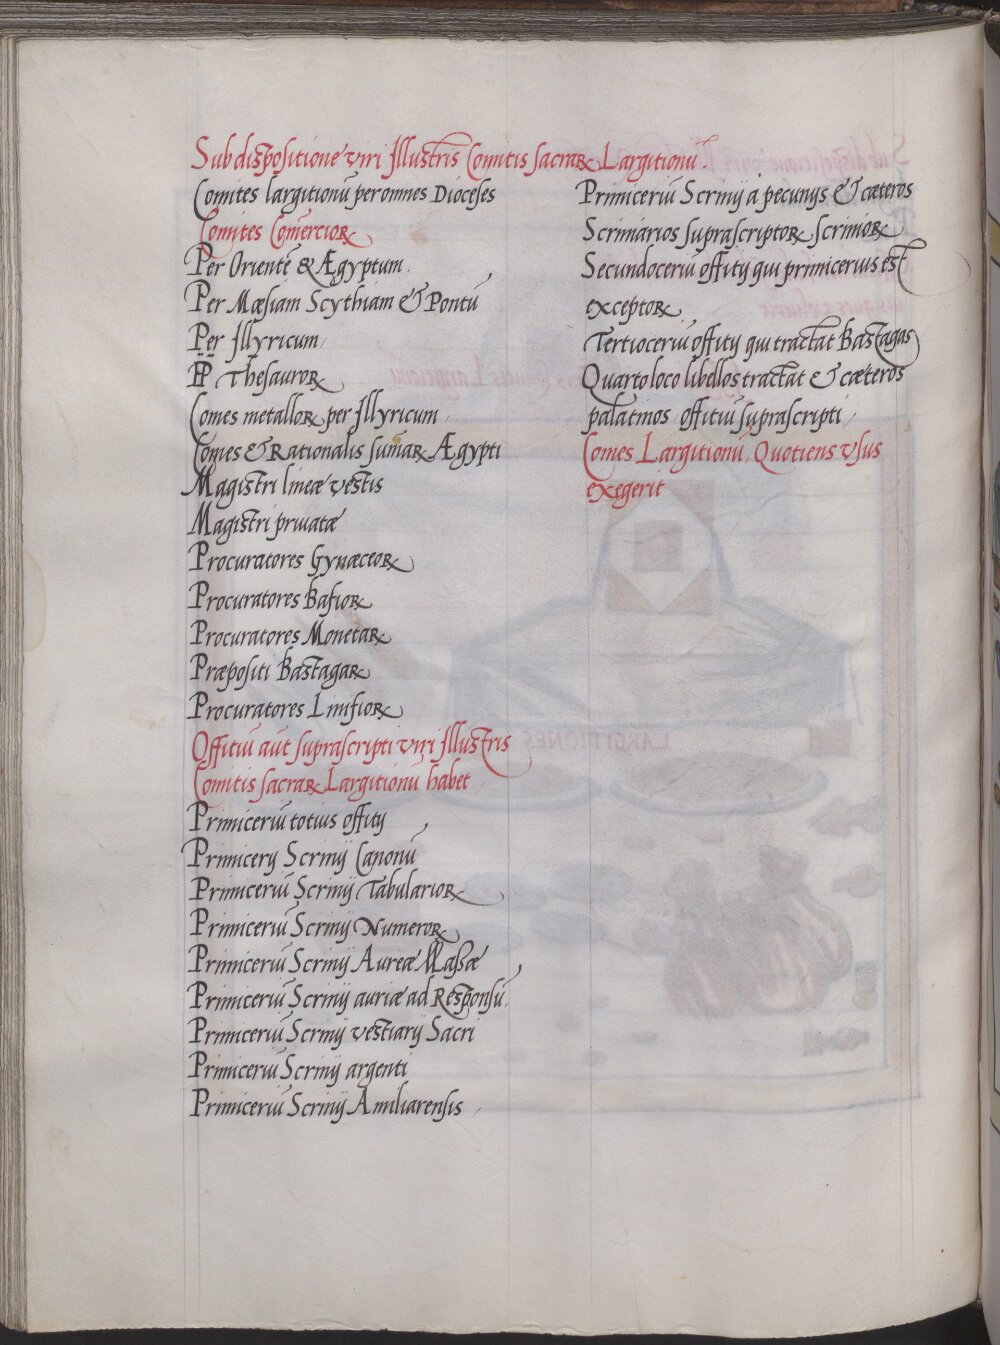 Sub dispositione viri Illustris Comitis sacraꝝ Largitionū
Comites largitionū per omnes Dioceses
Comites Comercioꝝ
Per Orientē & Ægyptum.
Per Mæsiam Scythiam & Pontū
Per Illyricum
PP Thesauroꝝ
Comes metalloꝝ per Illyricum
Comes & Rationalis sumaꝝ Ægypti
Magistri lineæ vestis
Magistri privatæ
Procuratores Gynæceoꝝ
Procuratores Bafioꝝ
Procuratores Monetaꝝ
Præpositi Bastagaꝝ
Procuratores Linifioꝝ
Offitiū aut suprascripti viri Illustris
Comitis sacraꝝ Largitionū habet
Primiceriū totius offitij
Primicerij Scrinij Canonū
Primiceriū Scrinij Tabularioꝝ
Primiceriū Scrinij Numeroꝝ
Primiceriū Scrinij Aureæ Maßæ
Primiceriū Scrinij auriæ ad Responsū.
Primiceriū Scrinij vestiarij Sacri
Primiceriū Scrinij argenti
Primiceriū Scrinij Anniliarensis
Primiceriū Scrinij a pecunijs & cæteros
Scriniarios suprascriptoꝝ scrinioꝝ
Secundoceriū offitij qui primicerius est
exceptoꝝ
Tertioceriū offitij qui tractat Bastagas
Quarto loco libellos tractat & cæteros
palatinos offitiū suprascripti
Comes Largitionū Quotiens usus
exegerit